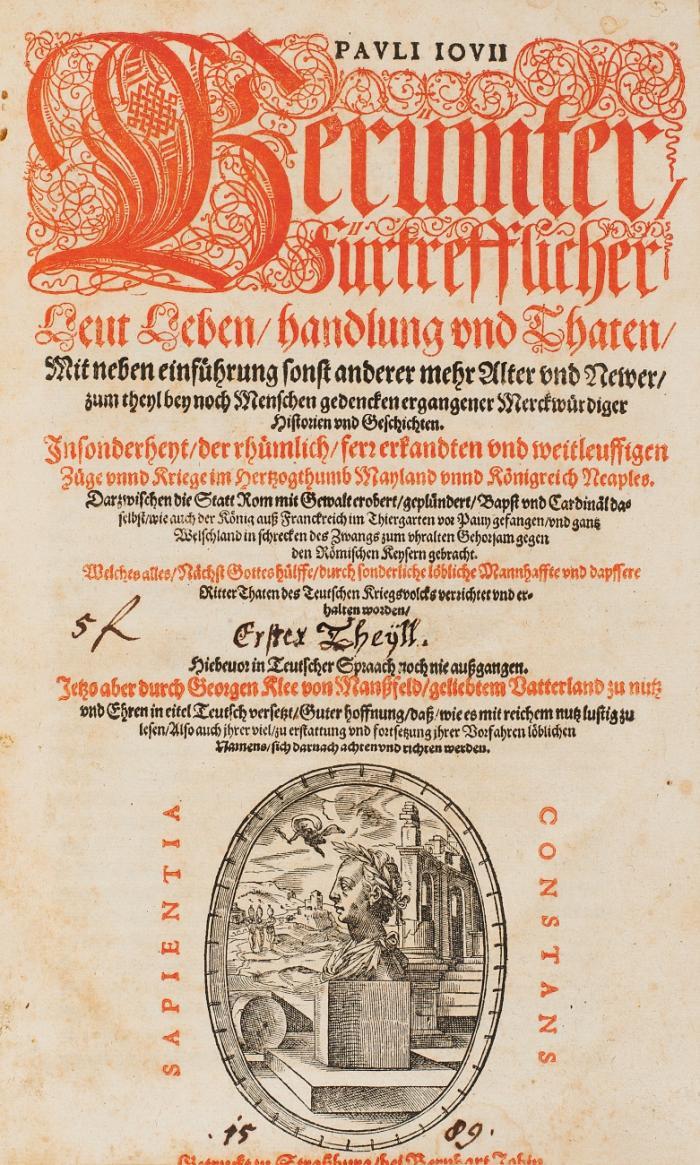 PAVLI IOVII
Berümter/
Fürtrefflicher
Leut Leben/ handlung vnd Thaten/
Mit neben einführung sonst anderer mehr Alter vnd Newer/
zum theyl bey noch Menschen gedencken ergangener Merckwürdiger
Historien vnd Geschichten.
Insonderheyt/ der rhümlich/ ferr erkandten vnd weitleuffigen
Züge vnnd Kriege im Hertzogthumb Mayland vnnd Königreich Neaples.
Darzwischen die Statt Rom mit Gewalt erobert/ geplündert/ Bapst vnd Cardinäl da-
selbst/ wie auch der König auß Franckreich im Thiergarten vor Pauy gefangen/ vnd gantz
Welschland in schrecken des Zwangs zum vhralten Gehorsam gegen
den Römischen Keysern gebracht.
Welches alles/ Nächst Gottes hülffe/ durch sonderliche löbliche Mannhaffte vnd dapffere
Ritter Thaten des Teutschen Kriegsvolcks verrichtet vnd er-
halten worden/
Erster Theyll.
Hiebeuor in Teutscher Spraach noch nie außgangen.
Jetzo aber durch Georgen Klee von Manßfeld/ geliebtem Vatterland zu nutz
vnd Ehren in eitel Teutsch versetzt/ Guter hoffnung/ daß/ wie es mit reichem nutz lustig zu
lesen/ Also auch jhrer viel/ zu erstattung vnd fortsetzung jhrer Vorfahren löblichen
Namens/ sich darnach achten vnd richten werden.
SAPIENTIA
CONSTANS
15 89.
Getruckt zu Straßburg/ bei Bernhart Jobin